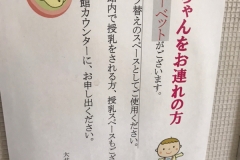 ちゃんをお連れの方
ーベットがございます。
替えのスペースとしてご使用ください。
館内で授乳をされる方、授乳スペースもござ
館カウンターに、お申し出ください。